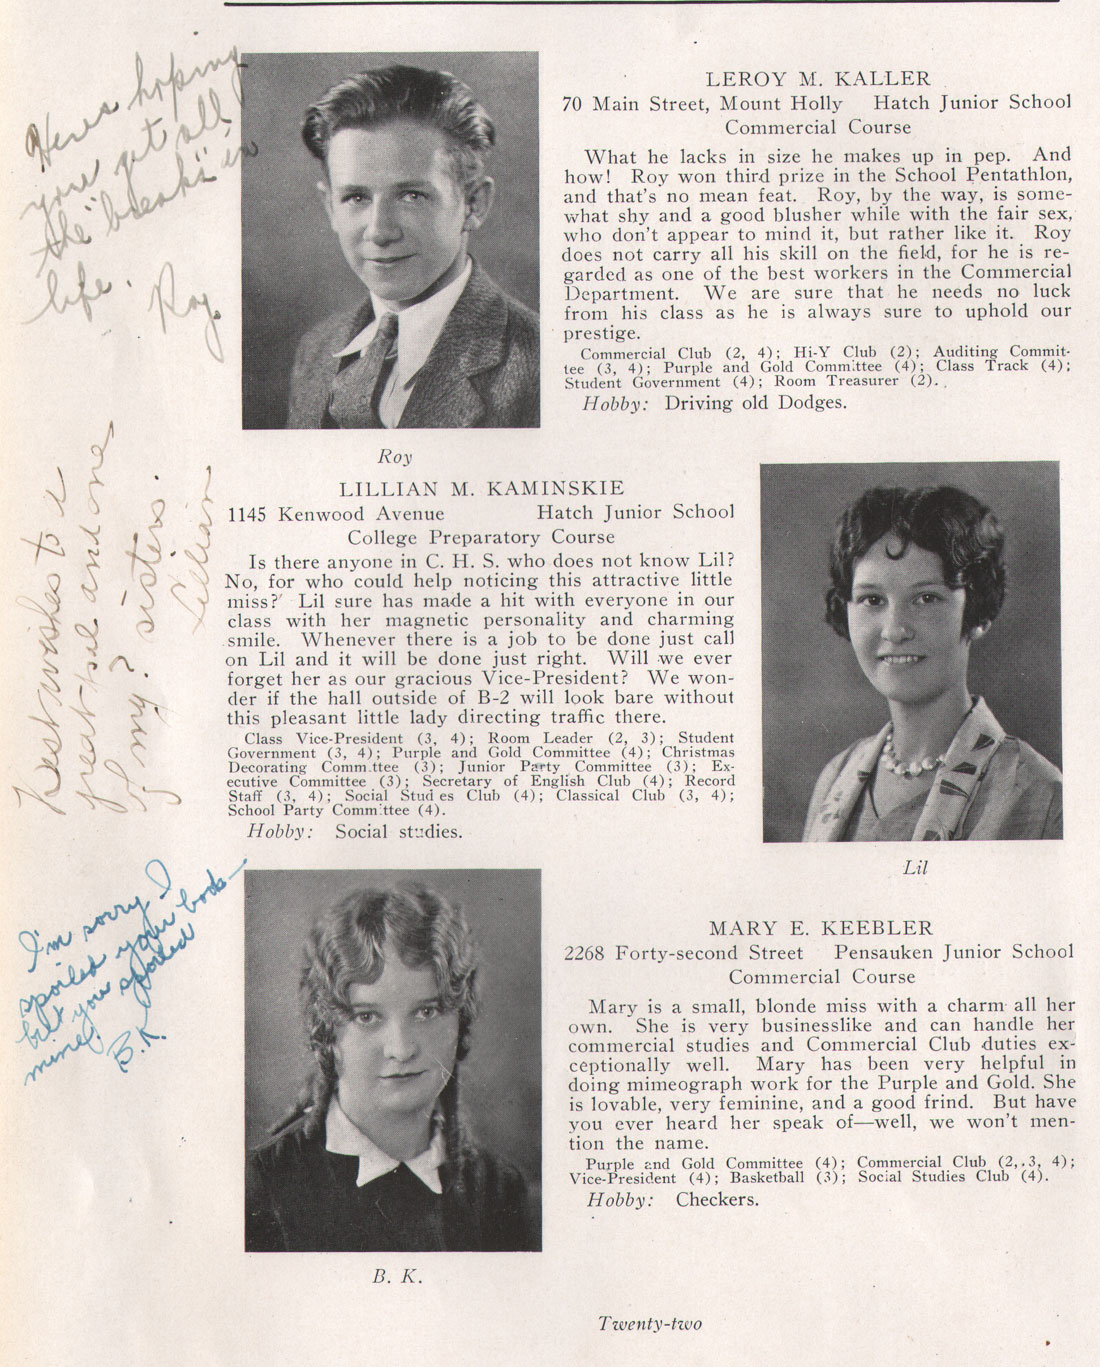 Here's hoping
you get all
the "breaks" in
life.
Roy
LEROY M. KALLER
70 Main Street, Mount Holly Hatch Junior School
Commercial Course
What he lacks in size he makes up in pep. And
how! Roy won third prize in the School Pentathlon,
and that's no mean feat. Roy, by the way, is some-
what shy and a good blusher while with the fair sex,
who don't appear to mind it, but rather like it. Roy
does not carry all his skill on the field, for he is re-
garded as one of the best workers in the Commercial
Department. We are sure that he needs no luck
from his class as he is always sure to uphold our
prestige.
Commercial Club (2, 4); Hi-Y Club (2); Auditing Commit-
tee (3, 4); Purple and Gold Committee (4); Class Track (4);
Student Government (4); Room Treasurer (2).
Hobby: Driving old Dodges.
Roy
Best wishes to a
great pal and one
of my? sisters.
Lillian
LILLIAN M. KAMINSKIE
1145 Kenwood Avenue Hatch Junior School
College Preparatory Course
Is there anyone in C. H. S. who does not know Lil?
No, for who could help noticing this attractive little
miss? Lil sure has made a hit with everyone in our
class with her magnetic personality and charming
smile. Whenever there is a job to be done just call
on Lil and it will be done just right. Will we ever
forget her as our gracious Vice-President? We won-
der if the hall outside of B-2 will look bare without
this pleasant little lady directing traffic there.
Class Vice-President (3, 4); Room Leader (2, 3); Student
Government (3, 4); Purple and Gold Committee (4); Christmas
Decorating Committee (3); Junior Party Committee (3); Ex-
ecutive Committee (3); Secretary of English Club (4); Record
Staff (3, 4); Social Studies Club (4); Classical Club (3, 4);
School Party Committee (4).
Hobby: Social studies.
Lil
I'm sorry I
spoiled your book—
but you spoiled
mine.
B.K.
MARY E. KEEBLER
2268 Forty-second Street Pensauken Junior School
Commercial Course
Mary is a small, blonde miss with a charm all her
own. She is very businesslike and can handle her
commercial studies and Commercial Club duties ex-
ceptionally well. Mary has been very helpful in
doing mimeograph work for the Purple and Gold. She
is lovable, very feminine, and a good frind. But have
you ever heard her speak of—well, we won't men-
tion the name.
Purple and Gold Committee (4); Commercial Club (2, 3, 4);
Vice-President (4); Basketball (3); Social Studies Club (4).
Hobby: Checkers.
B. K.
Twenty-two